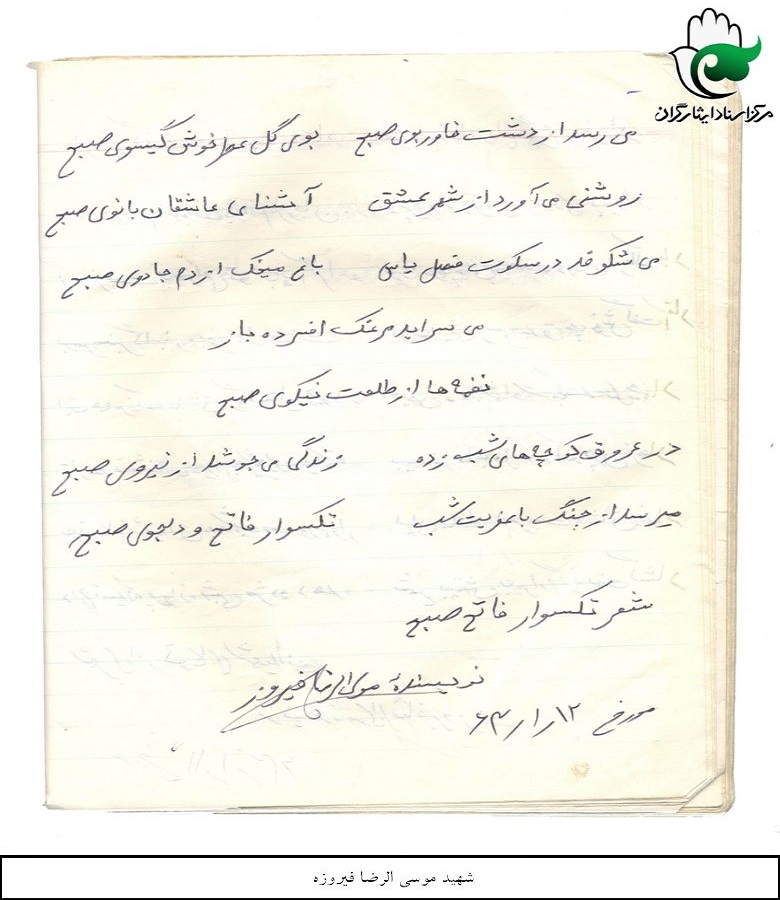 مرکز اسناد ایثارگران
می رسد از دشت خاور بوی صبح    بوی گل عطر خوش گیسوی صبح
روشنی می آورد از شهر عشق    آشنای عاشقان بانوی صبح
می شکوفد در سکوت فصل یاس    باغ میخک از دم جادوی صبح
می سراید مرغک افسرده باز
نغمه ها از طلعت نیکوی صبح
در عروق کوچه های شب زده    زندگی می جوشد از نیروی صبح
میرسد از جنگ با عفریت شب    تکسوار فاتح و دلجوی صبح
شعر تکسوار فاتح صبح
نویسندهٔ موسی الرضا فیروزه
مورخ ۱۲ر۱ر۶۴
شهید موسی الرضا فیروزه